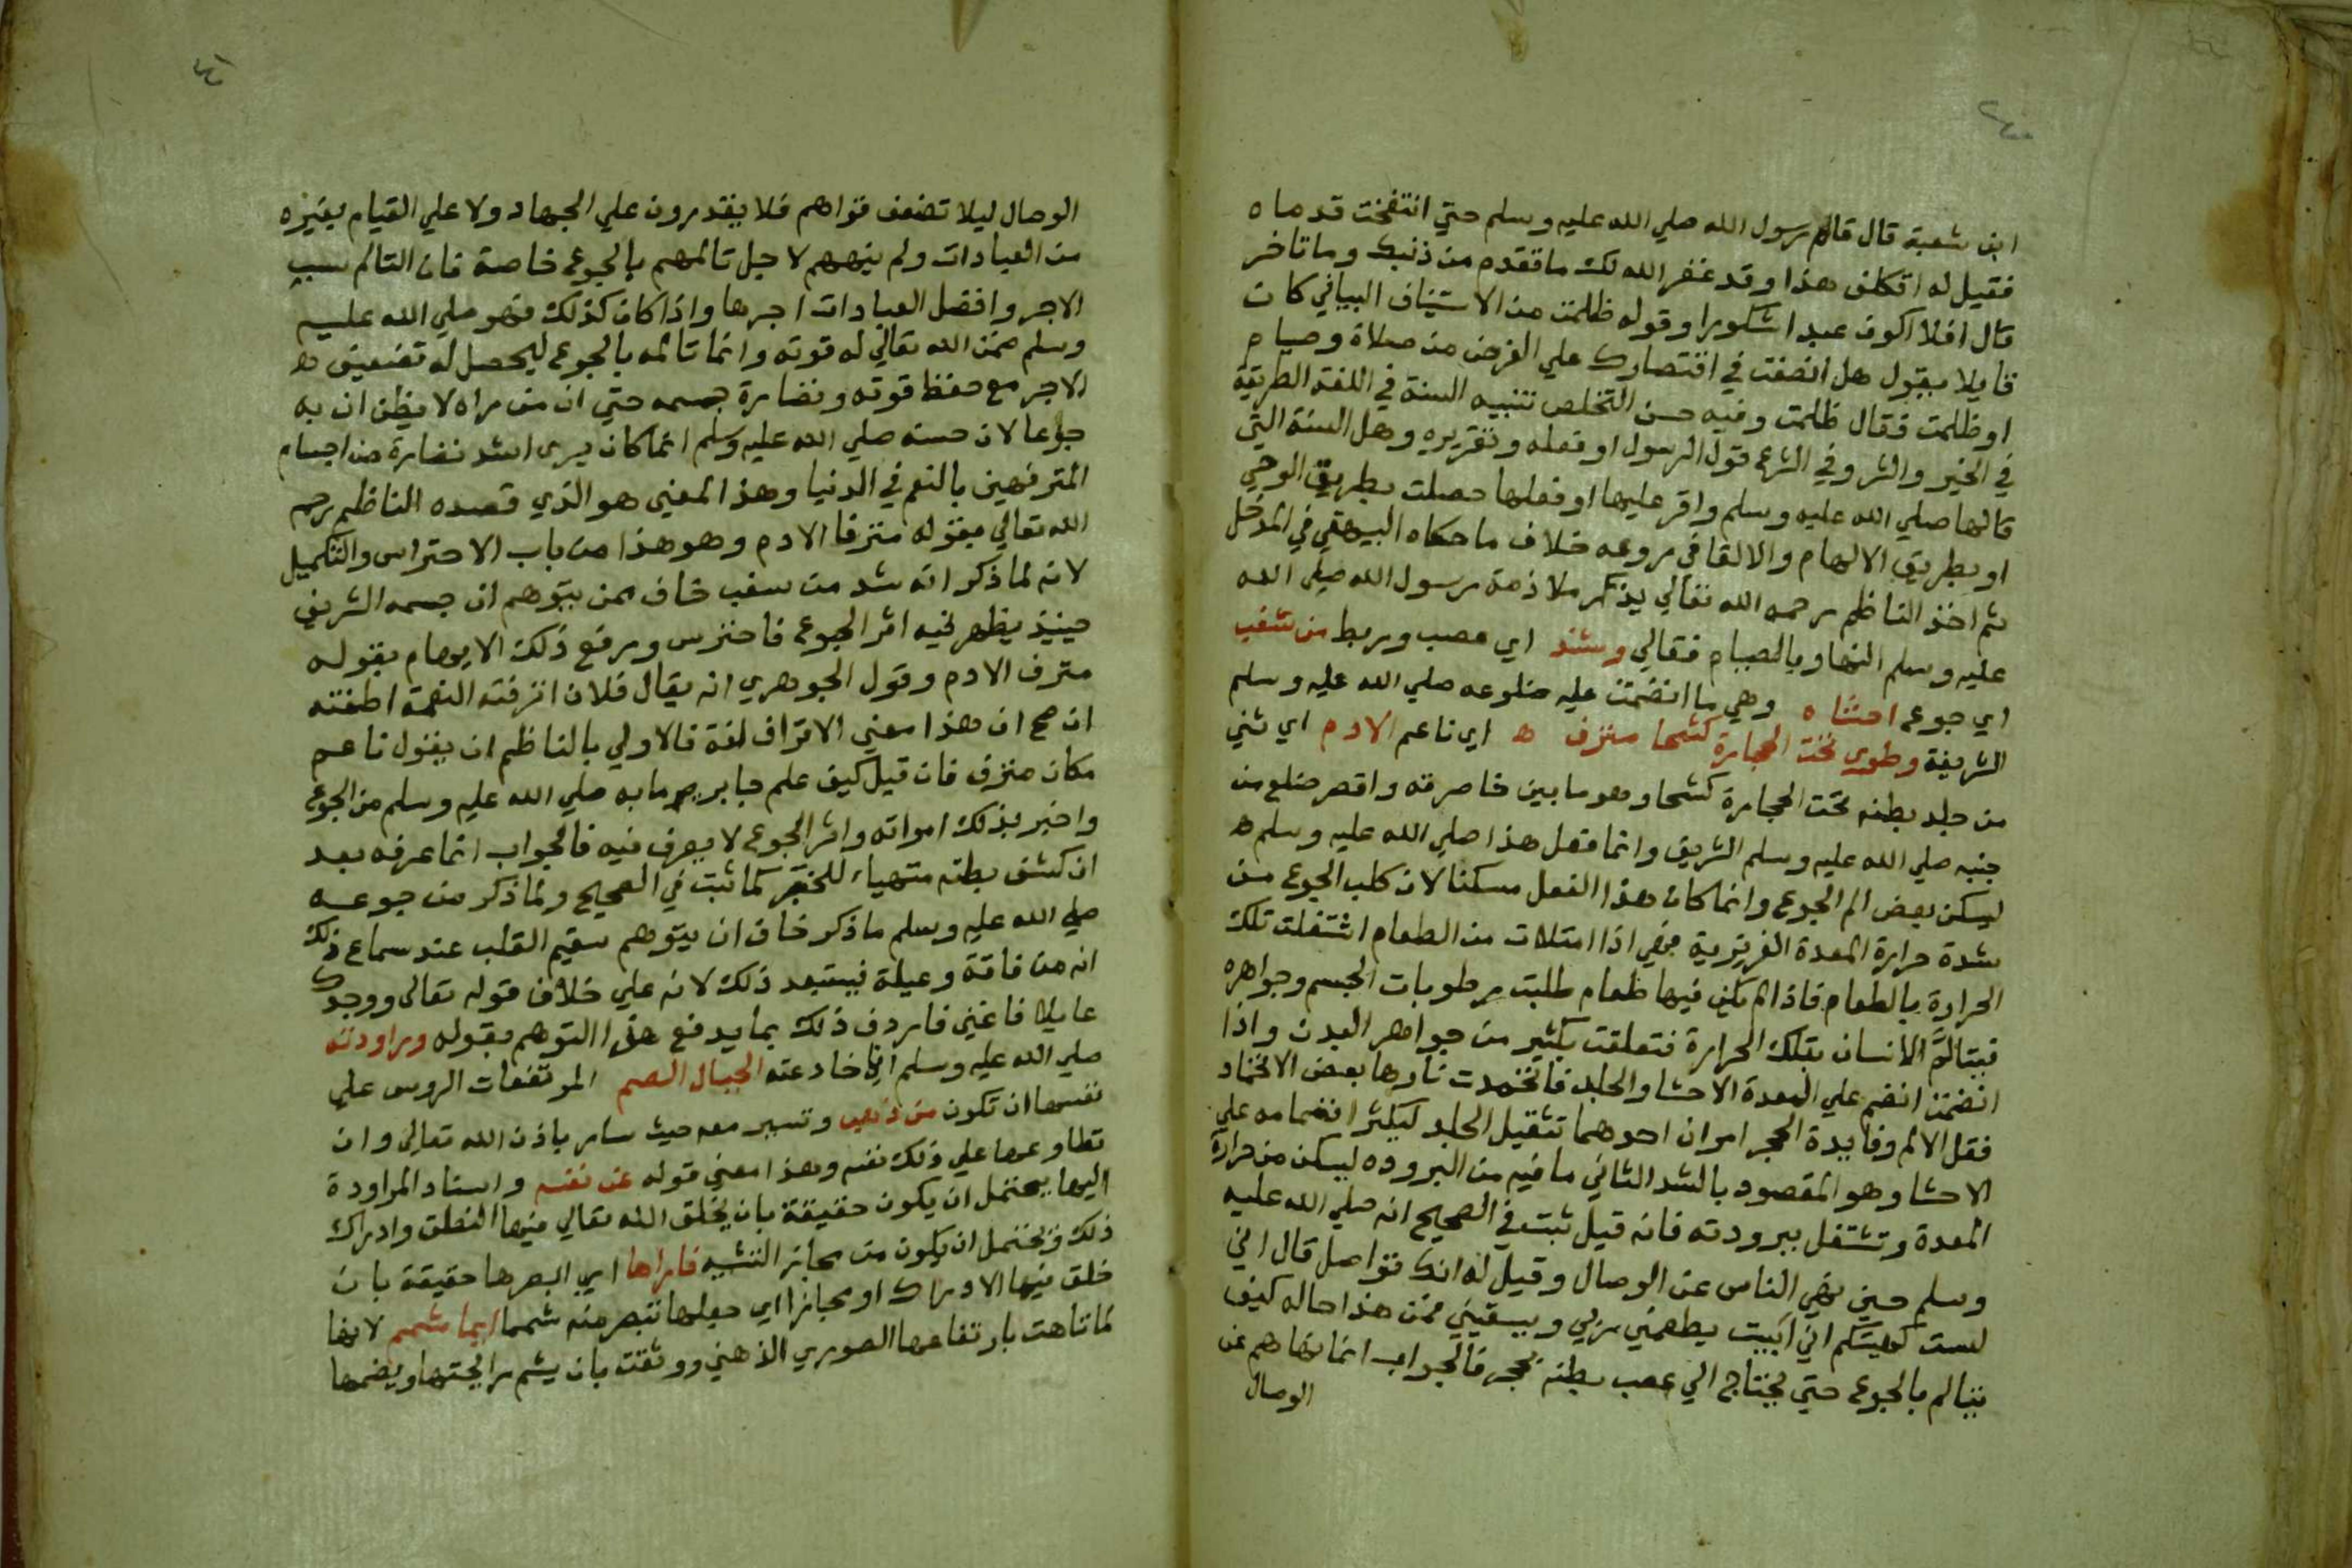 ابن شعبة قال قام رسول الله صلي الله عليه وسلم حتي انتفخت قدماه
فقيل له اتكلف هذا وقد غفر الله لك ما تقدم من ذنبك وما تاخر
قال افلا اكون عبدا شكورا وقوله ظلمت من الاستيناف البياني كان
قايلا يقول هل انصفت في اقتصارك علي الفرض من صلاة وصيام
او ظلمت فقال ظلمت وفيه حسن التخلص تنبيه السنة في اللغة الطريقة
في الخير والشر وفي الشرع قول الرسول او فعله وتقريره وهل السنة التي
قالها صلي الله عليه وسلم واقر عليها او فعلها حصلت بطريق الوحي
او بطريق الالهام والالقا في روعه خلاف ما حكاه البيهقي في المدخل
ثم اخذ الناظم رحمه الله تعالي يذكر ملازمة رسول الله صلي الله
عليه وسلم النهار بالصيام فقالي وشد اي عصب وربط من سغب
اي جوع احشاه وهي ما انضمت عليه ضلوعه صلي الله عليه وسلم
الشريفة وطوي تحت الحجارة كشحا مترف ه اي ناعم الادم اي ثني
من جلد بطنه تحت الحجارة كشحا وهو ما بين خاصرته واقصر ضلع من
جنبه صلي الله عليه وسلم الشريف وانما فعل هذا صلي الله عليه وسلم ه
ليسكن بعض الم الجوع وانما كان هذا الفعل مسكنا لان كلب الجوع من
شدة حرارة المعدة الغريزية فهي اذا امتلات من الطعام اشتغلت تلك
الحرارة بالطعام فاذا لم يكن فيها طعام طلبت رطوبات الجسم وجواهره
فيتالم الانسان بتلك الحرارة فتعلقت بكثير من جواهر البدن واذا
انضمت انضم علي المعدة الاحشا والجلد فانخمدت نارها بعض الانخماد
فقل الالم وفايدة الحجر امران احدهما تثقيل الجلد ليكثر انضمامه علي
الاحشا وهو المقصود بالشد الثاني ما فيه من البروده ليسكن من حرارة
المعدة وتشتغل ببرودته فان قيل ثبت في الصحيح انه صلي الله عليه
وسلم حين نهي الناس عن الوصال وقيل له انك تواصل قال اني
لست كهيئتكم اني ابيت يطعمني ربي ويسقيني فمن هذا حاله كيف
يتالم بالجوع حتي يحتاج الي عصب بطنه بحجر فالجواب انما نهاهم عن
الوصال
٤١
الوصال ليلا تضعف قواهم فلا يقدرون علي الجهاد ولا علي القيام بغيره
من العبادات ولم ينههم لاجل تالمهم بالجوع خاصة فان التالم سبب
الاجر وافضل العبادات اجرها واذا كان كذلك فهو صلي الله عليه
وسلم ضمن الله تعالي له قوته وانما تالمه بالجوع ليحصل له تضعيف ه
الاجر مع حفظ قوته ونضارة جسمه حتي ان من راه لا يظن ان به
جوعا لان حسنه صلي الله عليه وسلم انما كان يرى اشد نضارة من اجسام
المترفهين بالنعم في الدنيا وهذا المعني هو الذي قصده الناظم رحمه
الله تعالي بقوله مترفا الادم وهو هذا من باب الاحتراس والتكميل
لانه لما ذكر انه شد من سغب خاف ممن يتوهم ان جسمه الشريف
حينيذ يظهر فيه اثر الجوع فاحترس ورفع ذلك الايهام بقوله
مترف الادم وقول الجوهري انه يقال فلان اترفته النعمة اطغته
ان صح ان هذا معني الاتراف لغة فالاولي بالناظم ان يقول ناعم
مكان مترف فان قيل كيف علم جابر ما به صلي الله عليه وسلم من الجوع
واخبر بذلك امراته واثر الجوع لا يعرف فيه فالجواب انما عرفه بعد
ان كشف بطنه متهياء للحفر كما ثبت في الصحيح ولما ذكر من جوعه
صلي الله عليه وسلم ما ذكر خاف ان يتوهم سقيم القلب عند سماع ذلك
انه من فاقة وعيلة فيستبعد ذلك لانه علي خلاف قوله تعالى ووجدك
عايلا فاغني فاردف ذلك بما يدفع هذا التوهم بقوله وراودته
صلي الله عليه وسلم اي خادعته الجبال الشم المرتفعات الروس علي
نفسها ان تكون من ذهب وتسير معه حيث سار باذن الله تعالي وان
تطاوعها علي ذلك نفسه وهذا معني قوله عن نفسه واسناد المراودة
اليها يحتمل ان يكون حقيقة بان يخلق الله تعالي فيها النطق وادراك
ذلك ويحتمل ان يكون من مجاز التشبيه فاراها اي ابصرها حقيقة بان
خلق فيها الادراك او مجازا اي جعلها تبصر منه شمما ايما شمم لانها
لما تاهت بارتفاعها الصوري الذهني ووثقت بان يشم رايحتها ويضمها